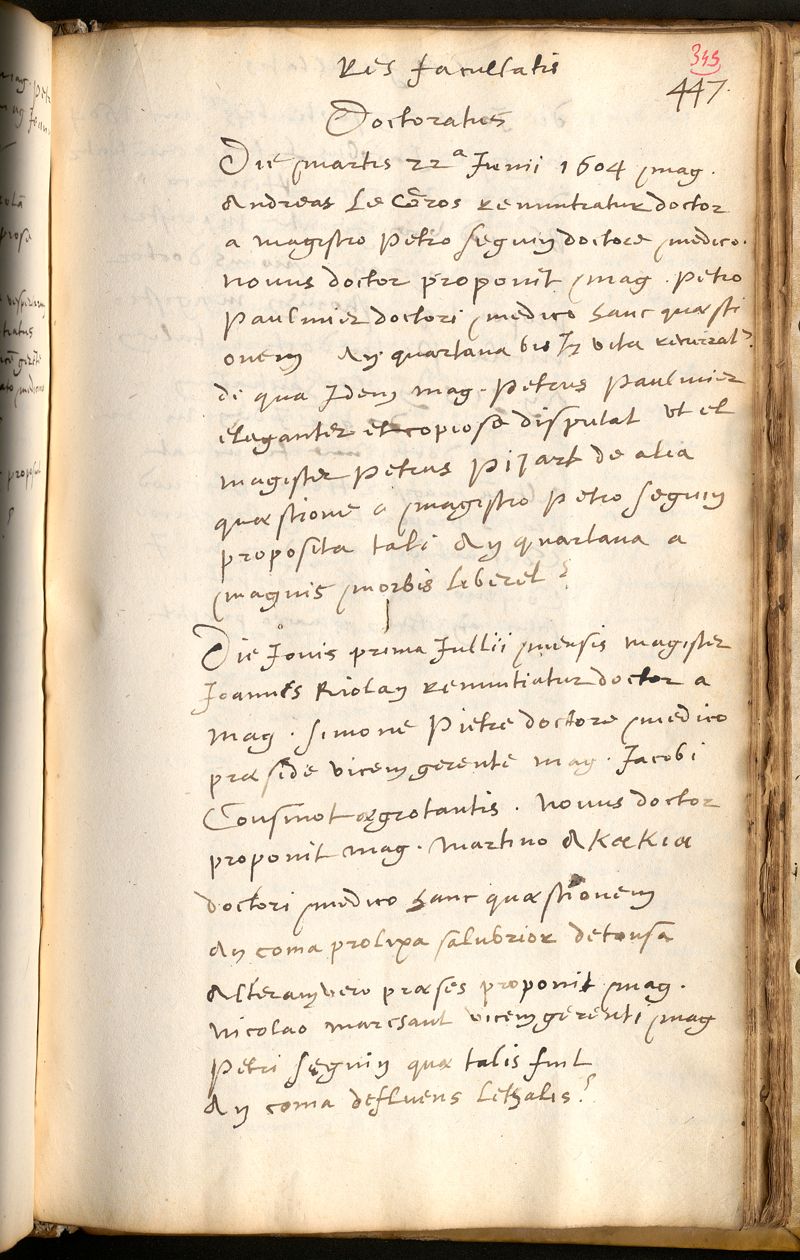 Res facultatis
345
447.
Doctoratus
Die martis 22ª Junii 1604 mag.
Andreas Le renuntiatur doctor
a magistro Petro Seguin doctore medico.
novus doctor proponit mag. Petro
Paulmier doctori medico hanc quæsti
onem An quartana bis In vita recurrat?
de qua Idem mag. Petrus Paulmier
eleganter et copiose disputat ut et
magister Petrus Pijart de alia
quæstione a magistro Petro Seguin
proposita tali An quartana a
magnis morbis liberet?
Die Jovis prima Jullii mensis magister
Joannes Riolan renuntiatur doctor a
mag. Simone Pietre doctore medico
præside vicem gerente mag. Jacobi
Cousinot ægrotantis. Novus doctor
proponit mag. Martino Akakia
doctori medico hanc quæstionem
An coma prolixa salubrior detonsa
Alteram vero præses proponit mag.
Nicolao Marcsant vicem gerenti mag
Petri Seguin quæ talis fuit
An coma defluens Lethalis?